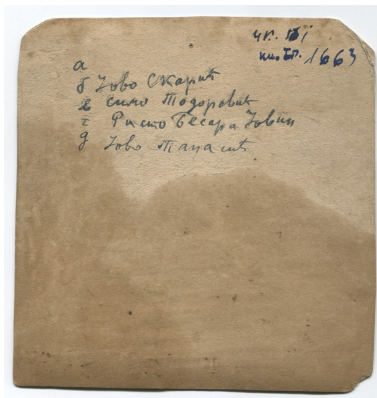 инв. бр. 1663
а
б Јово Скарић
в Симо Тодоровић
г Ристо Бесара Јовин
д Јово Танасић